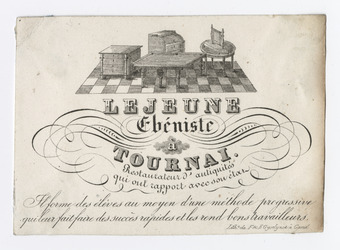 LEJEUNE
Ebéniste
à
TOURNAI.
Restaurateur d'antiquités
qui ont rapport avec son état.
Il forme des élèves au moyen d'une méthode progressive
qui leur fait faire des succès rapides et les rend bons travailleurs.
à Gand